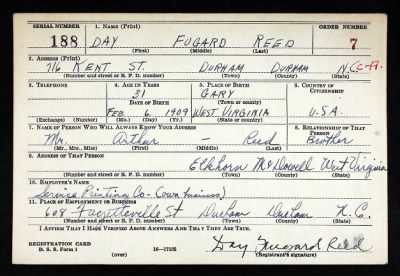 SERIAL NUMBER 1. Name (Print) ORDER NUMBER
188 DAY FUGARD REED 7
(First) (Middle) (Last)
2. Address (Print)
716 KENT ST. DURHAM DURHAM N.C.
(Number and street or R. F. D. number) (Town) (County) (State)
3. Telephone 4. Age in Years 5. Place of Birth 6. Country of Citizenship
31 GARY
Date of Birth (Town or county)
FEB. 6 1909 WEST VIRGINIA U.S.A.
(Exchange) (Number) (Mo.) (Day) (Yr.) (State or country)
7. Name of Person Who Will Always Know Your Address 8. Relationship of That Person
Mr. Arthur — Reed Brother
(Mr., Mrs., Miss) (First) (Middle) (Last)
9. Address of That Person
Elkhorn McDowell West Virginia
(Number and street or R. F. D. number) (Town) (County) (State)
10. Employer's Name
Service Printing Co- (own business)
11. Place of Employment or Business
608 Fayetteville St Durham Durham N.C.
(Number and street or R. F. D. number) (Town) (County) (State)
I Affirm That I Have Verified Above Answers and That They Are True.
REGISTRATION CARD
D. S. S. Form 1 16—17105 Day Fugard Reed
(Registrant's signature)